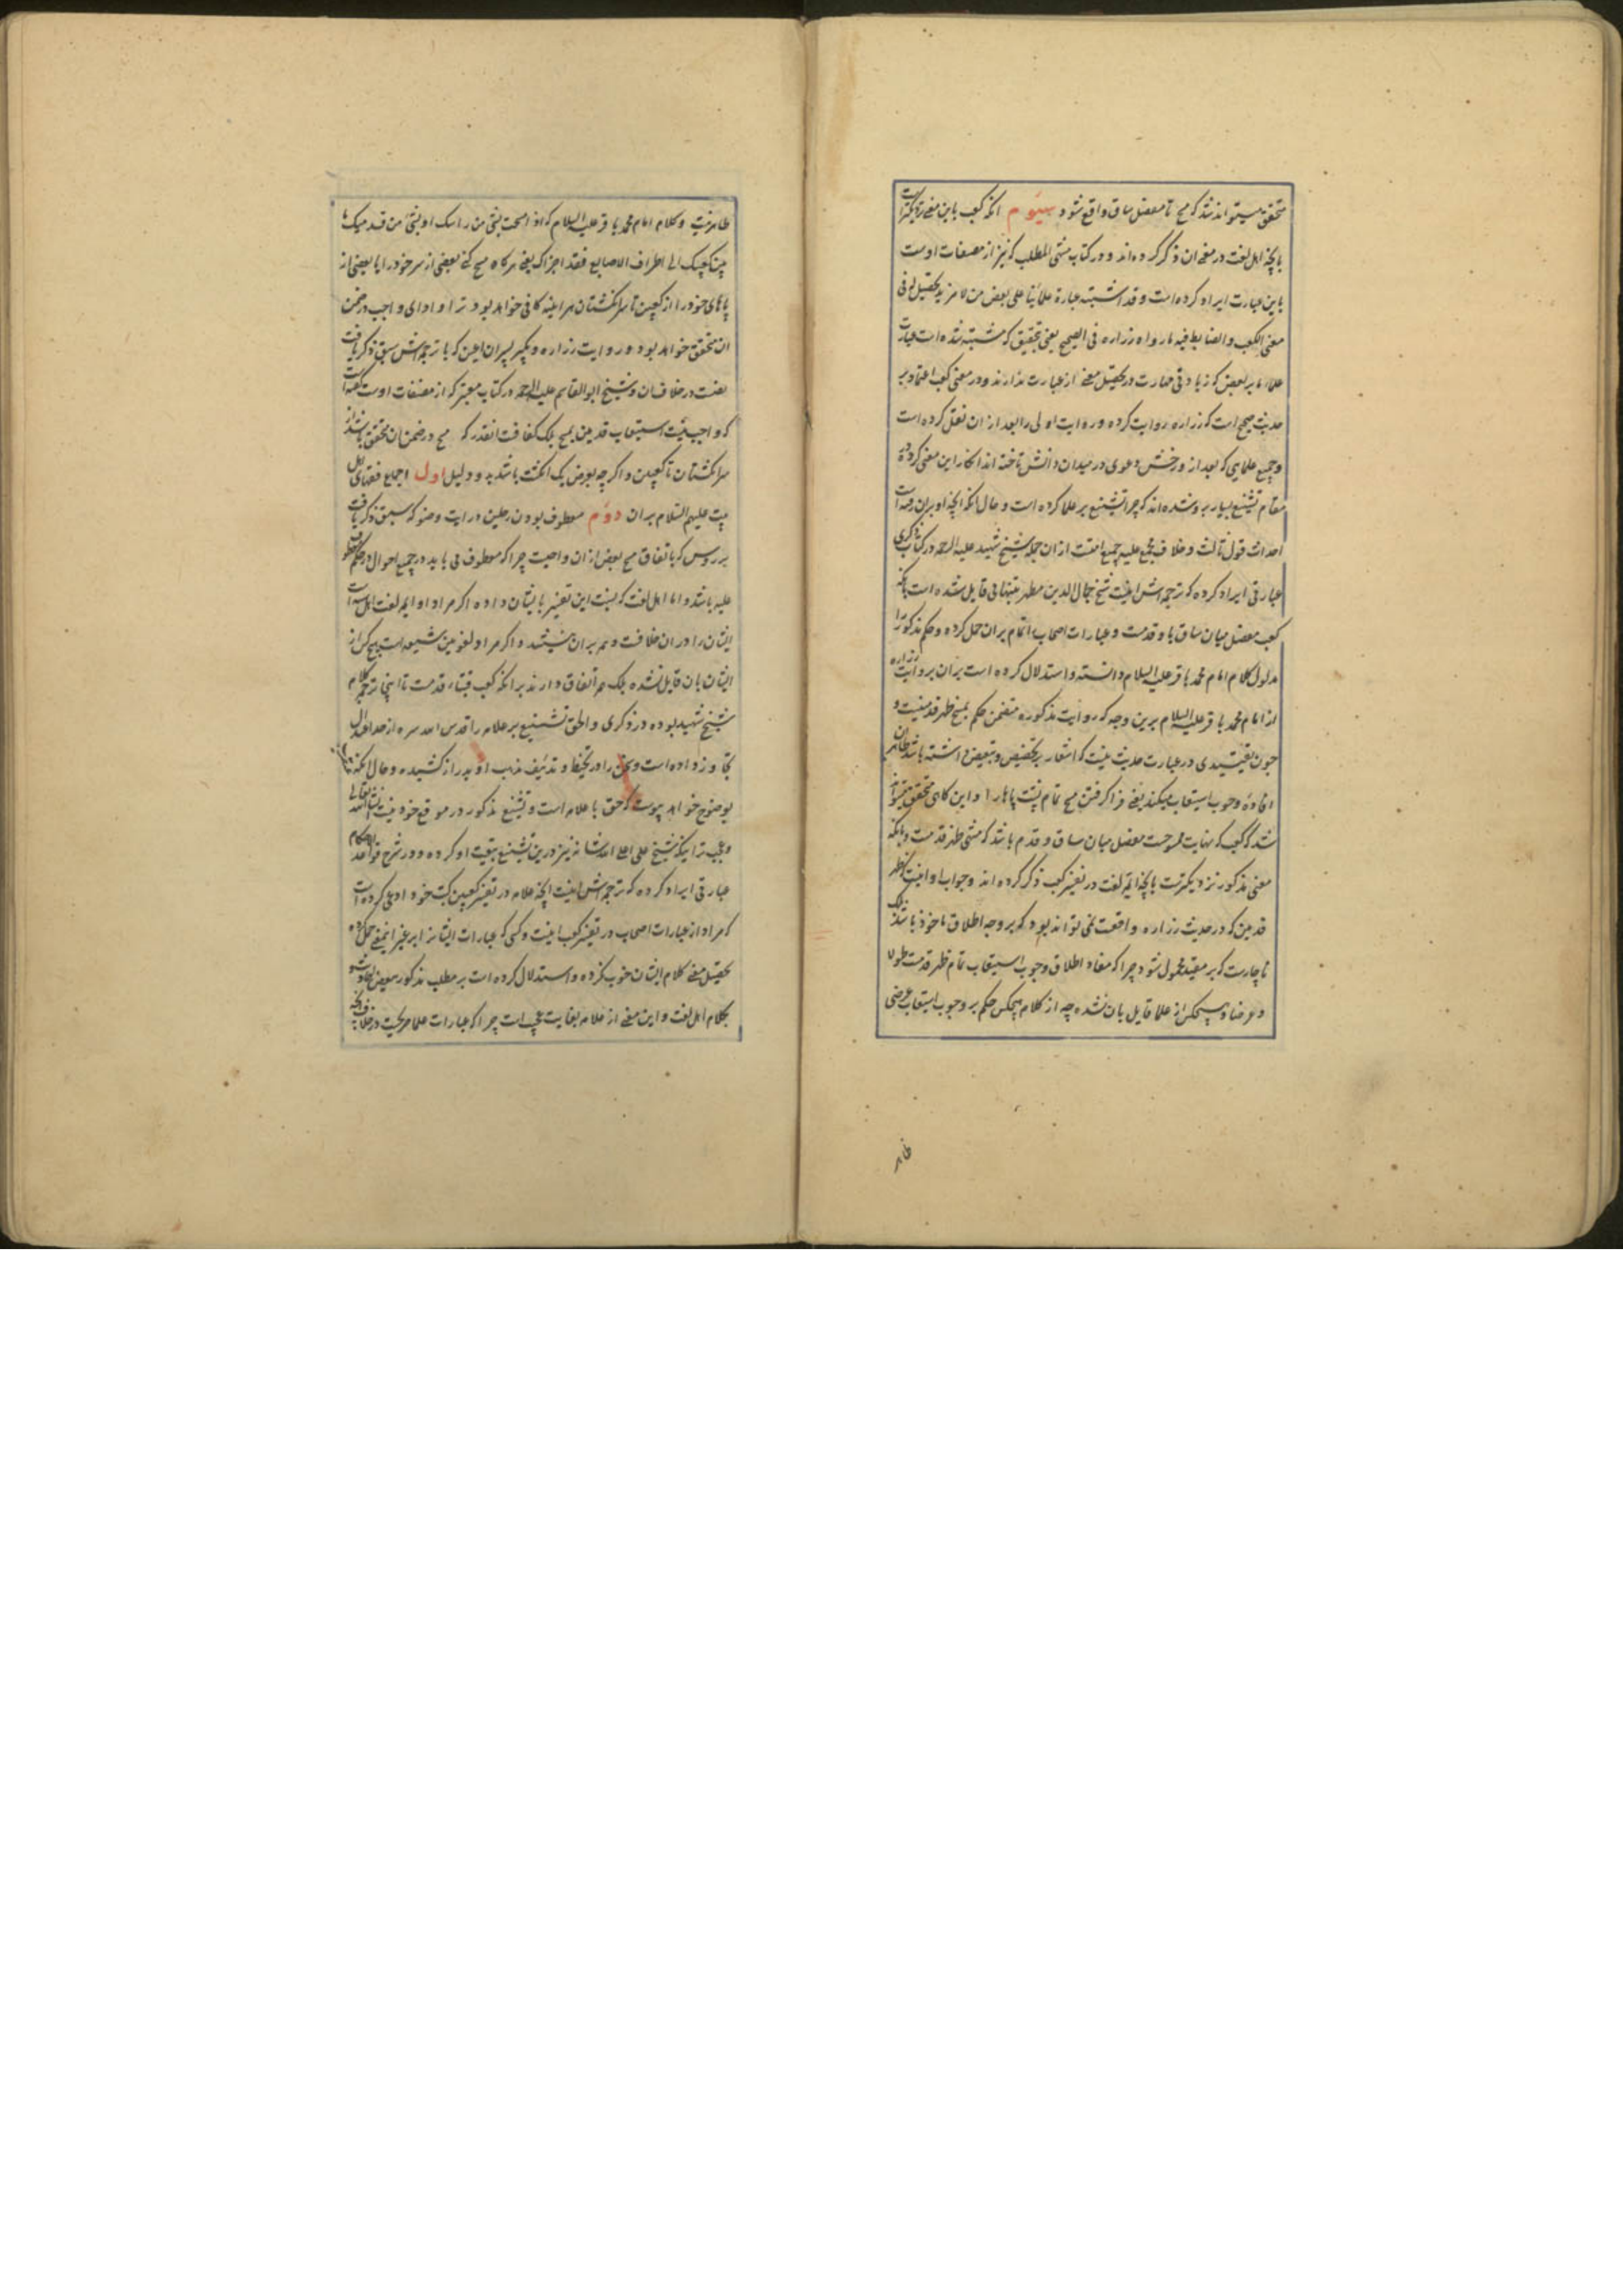 متحقق میتواند شد که مسح تا مفصل ساق واقع شود سیوم آنکه کعب باین معنی نزدیکتر است
بانچه اهل لغت در معنی ان ذکر کرده اند و در کتاب منتهی المطلب که نیز از مصنفات اوست
باین عبارت ایراد کرده است و قد اشتبه عبارة علمائنا علی بعض من لا مزید تحصیل له فی
معنی الکعب و الضابط فیه ما رواه زراره فی الصحیح یعنی بتحقیق که مشتبه شده است عبارت
علماء ما بر بعضی که زیادتی مهارت در تحصیل معنی از عبارت ندارند و در معنی کعب اعتماد بر
حدیث صحیح است که زراره روایت کرده و روایت اولی را بعد از ان نقل کرده است
و جمیع علمایی که بعد از و رخش دعوی در میدان دانش تاخته اند انکار این معنی کرده در
مقام تشنیع بسیار برو شده اند که چرا تشنیع بر علما کرده است و حال انکه انچه او بران رفته است
احداث قول ثالث و خلاف مجمع علیه جمیع امتست از ان جمله شیخ شهید علیه الرحمه در کتاب ذکری
عبارتی ایراد کرده که ترجمه اش اینست شیخ جمال الدین مطهر بتنهائی قایل شده است بانکه
کعب مفصل میان ساق پا و قدمست و عبارات اصحاب را تمام بران حمل کرده و حکم مذکور را
مدلول کلام امام محمد باقر علیه السلام دانسته و استدلال کرده است بران بروایت زراره
از امام محمد باقر علیه السلام برین وجه که روایت مذکوره متضمن حکم بمسح ظهر قدمینست و
چون تقییدی در عبارت حدیث نیست که اشعار بر تخصیص و تبعیض داشته باشد ظاهر ان
افاده وجوب استیعاب میکند یعنی فرا گرفتن مسح تمام پشت پاها را و این کاهی متحقق میتواند
شد که کعب که نهایت ممسوحست مفصل میان ساق و قدم باشد که منتهی ظهر قدمست و بانکه
معنی مذکور نزدیکترست بانچه ایمه لغت در تفسیر کعب ذکر کرده اند و جواب او اینست که ظهر
قدمین که در حدیث زراره واقعست نمی تواند بود که بر وجه اطلاق ماخوذ باشد بلکه
ناچارست که بر مقید محمول شود چرا که مفاد اطلاق وجوب استیعاب تمام ظهر قدمست طولا
و عرضا و هیچکس از علما قایل بان نشده چه از کلام هیچکس حکم بر وجوب استیعاب عرضی
ظاهر
ظاهر نیست و کلام امام محمد باقر علیه السلام که اذا مسحت بشیء من راسک او بشیء من قدمیک ما
بین کعبیک الی اطراف الاصابع فقد اجزاک یعنی هرکاه مسح کنی بعضی از سر خود را یا بعضی از
پاهای خود را از کعبین تا سر انکشتان هراینه کافی خواهد بود ترا و ادای واجب در ضمن
ان متحقق خواهد بود و روایت زراره و بکیر پسران اعین که با ترجمه اش سبق ذکر یافت
نصست در خلاف ان و شیخ ابو القاسم علیه الرحمه در کتاب معتبر که از مصنفات اوست کفته است
که واجب نیست استیعاب قدمین بمسح بلکه کافیست انقدر که مسح در ضمن ان متحقق باشد از
سر انکشتان تا کعبین و اکرچه بعرض یک انکشت باشد بدو دلیل اول اجماع فقهای اهل
بیت علیهم السلام بران دوم معطوف بودن رجلین در ایت وضو که سبق ذکر یافت
بر روس که باتفاق مسح بعض از ان واجبست چرا که معطوف می باید در جمیع احوال در حکم معطوف
علیه باشد و اما اهل لغت که نسبت این تفسیر بایشان داده اکر مراد او ایمه لغت اهل سنت است
ایشان را در ان خلافست و همه بران نیستند و اکر مراد لغویین شیعه است هیچ کس از
ایشان بان قایل نشده بلکه همه اتفاق دارند بر انکه کعب قبتا قدمست تا اینجا ترجمه کلام
شیخ شهید بوده در ذکری و الحق تشنیع بر علامه را قدس الله سره از حد اعتدال
تجاوز داده است و سخن را در تخطئه و تزئیف مذهب او بدر از کشیده و حال انکه
بوضوح خواهد پیوست که حق با علامه است و تشنیع مذکور در موقع خود نیست انشا الله تعالی
و عجب تر اینکه شیخ علی اعلی الله شانه نیز درین تشنیع بتبعیت او کرده و در شرح قواعد الاحکام
عبارتی ایراد کرده که ترجمه اش اینست انچه علامه در تفسیر کعبین در کتب خود ادعا کرده است
که مراد از عبارات اصحاب در تفسیر کعب اینست و کسی که عبارات ایشانرا بر غیر این معنی حمل کرده
تحصیل معنی کلام ایشان خوب نکرده و استدلال کرده است بر مطلب مذکور ببعض احادیث و
بکلام اهل لغت و این معنی از علامه بغایت عجب است چرا که عبارات علما صریحست در خلاف انکه